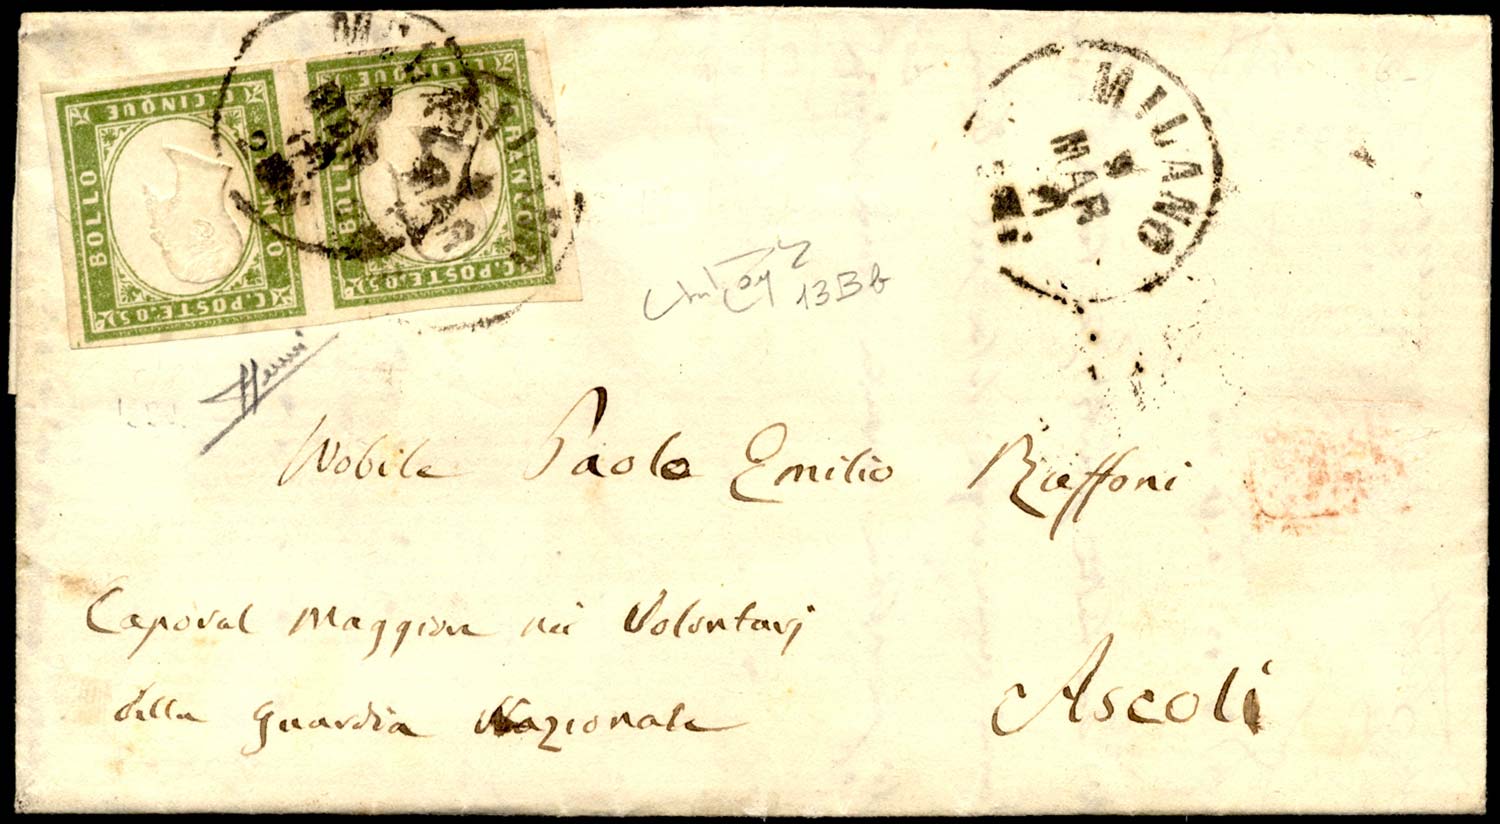 C. POSTE. 05
BOLLO
C. CINQUE
C. POSTE. 05
BOLLO
FRANCO
C. CINQUE
MILANO
9
MAR
MILANO
13Bb
Nobile Paolo Emilio Ruffoni
Caporal Maggiore nei Volontarj
della Guardia Nazionale
Ascoli